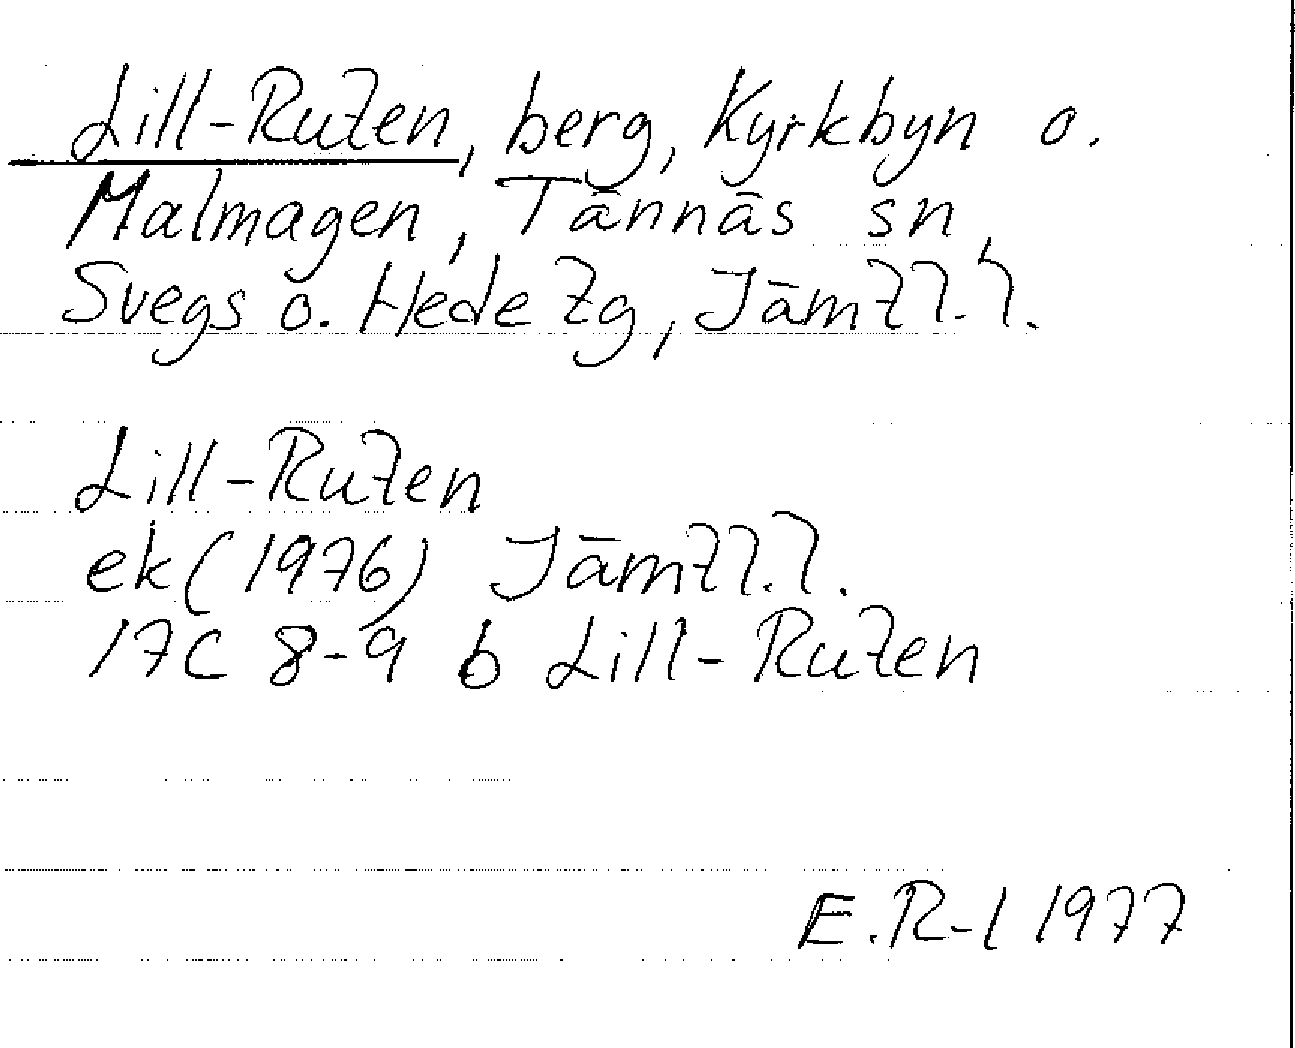 Lill-Ruten, berg, Kyrkbyn o.
Malmagen, Tännäs sn,
Svegs o. Hede tg, Jämtl.l.
Lill-Ruten
ek (1976) Jämtl.l.
17C 8-9 b Lill-Ruten
E.R-l 1977